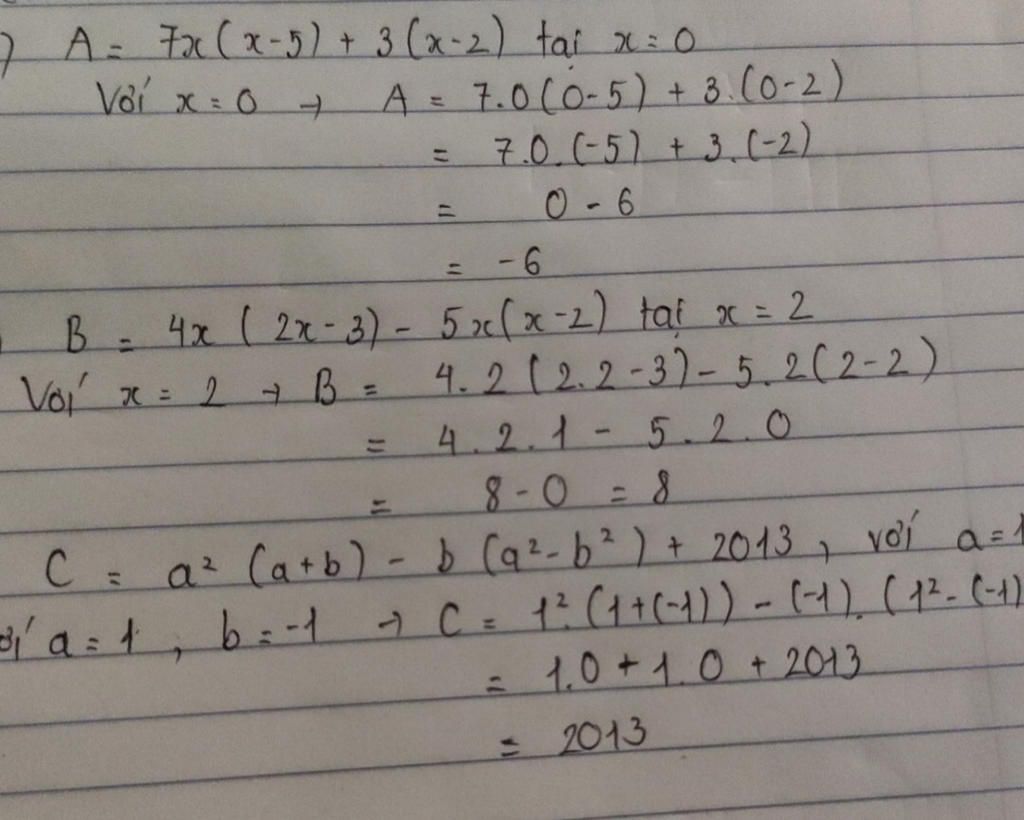 ) A = 7x(x-5) + 3(x-2) tại x = 0
Với x = 0 → A = 7.0(0-5) + 3.(0-2)
= 7.0.(-5) + 3.(-2)
= 0 - 6
= -6
B = 4x ( 2x-3) - 5x(x-2) tại x = 2
Với x = 2 → B = 4.2(2.2-3) - 5.2(2-2)
= 4.2.1 - 5.2.0
= 8-0 = 8
C = a² (a+b) - b (a²-b²) + 2013, với a=1
ới a=1, b=-1 → C = 1².(1+(-1)) - (-1).(1²-(-1)
= 1.0 + 1.0 + 2013
= 2013